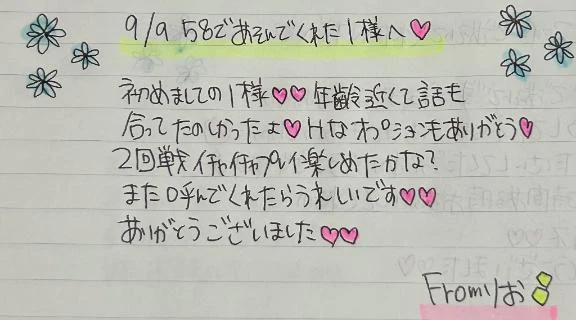 9/9 58であそんでくれた1様へ♡
初めましての1様♡♡年齢近くて話も
合ってたのしかったよ♡Hなオプションもありがとう♡
2回戦イチャイチャプレイ楽しめたかな?
また呼んでくれたらうれしいです♡♡
ありがとうございました♡♡
Fromりお